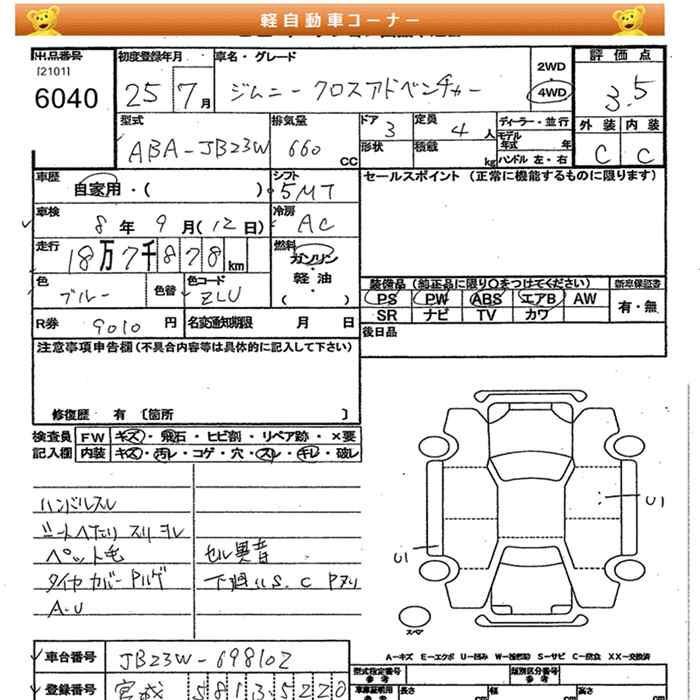 軽自動車コーナー
出品番号
[2101]
6040
初度登録年月
25 7月
車名・グレード
ジムニー クロスアドベンチャー
2WD
4WD
評価点
3.5
型式
ABA-JB23W
排気量
660 CC
ドア 3
形状
定員 4 人
積載 kg
ディーラー・並行
モデル年式 年
ハンドル 左・右
外装 内装
C C
車歴
自家用・( )
シフト
5MT
セールスポイント (正常に機能するものに限ります)
車検
8年 9月(12日)
冷房
AC
走行
18万7千878km
燃料
ガソリン・
軽油
( )
色
ブルー
色替
色コード
ZLU
装備品 (純正品に限り○をつけてください)
新車保証書
PS PW ABS エアB AW
有・無
SR ナビ TV カワ
R券 9010円
名変通知期限 月 日
後日品
注意事項申告欄(不具合内容等は具体的に記入して下さい)
修復歴 有 [箇所 ]
検査員
記入欄
FW キズ・飛石・ヒビ割・リペア跡・×要
内装 キズ・汚レ・コゲ・穴・スレ・キレ・破レ
ハンドルスレ
シートへたり スリ ヨレ
ペット毛
セル異音
タイヤカバーPハゲ
下廻りS.C Pヌリ
A-U
U1
U1
スペア
A-キズ E-エクボ U-凹み W-補修跡 S-サビ C-腐食 XX-交換済
車台番号 JB23W-698102
登録番号 宮城 581 3 5220
型式指定番号
参考
類別区分番号
参考
車庫証明用
参考
長さ cm
幅 cm
高さ cm